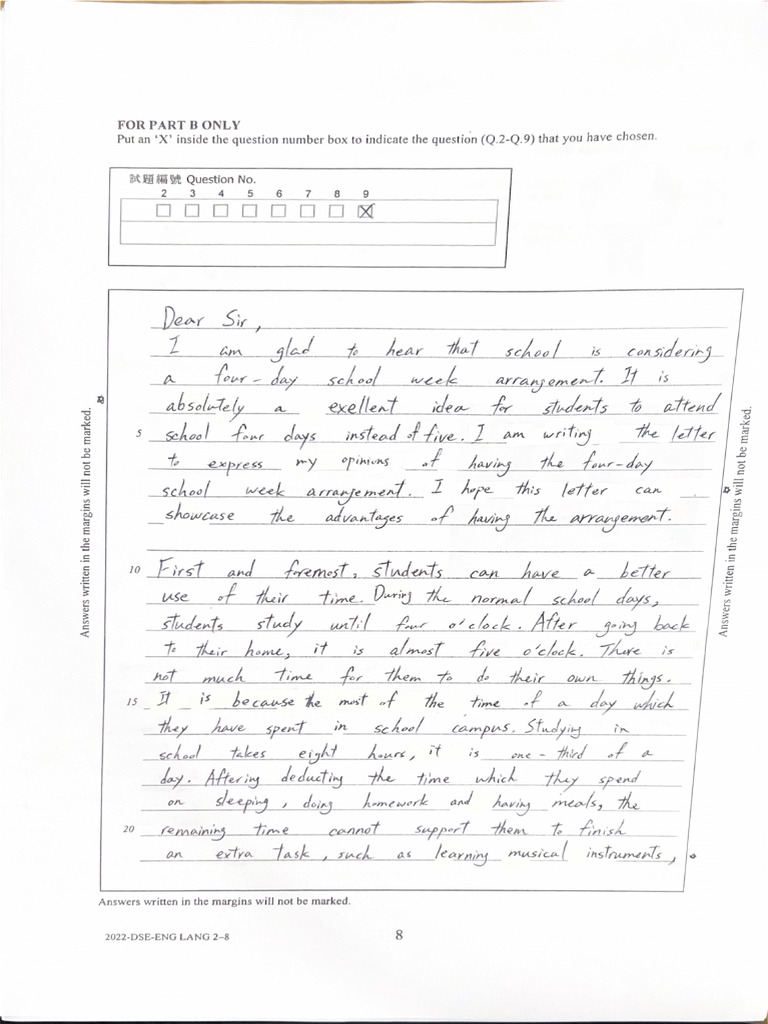 FOR PART B ONLY
Put an ‘X’ inside the question number box to indicate the question (Q.2-Q.9) that you have chosen.
試題編號 Question No.
2 3 4 5 6 7 8 9
X
Dear Sir,
I am glad to hear that school is considering
a four-day school week arrangement. It is
absolutely a exellent idea for students to attend
5 school four days instead of five. I am writing the letter
to express my opinions of having the four-day
school week arrangement. I hope this letter can
showcase the advantages of having the arrangement.
10 First and foremost, students can have a better
use of their time. During the normal school days,
students study until four o'clock. After going back
to their home, it is almost five o'clock. There is
not much time for them to do their own things.
15 It is because the most of the time of a day which
they have spent in school campus. Studying in
school takes eight hours, it is one-third of a
day. Aftering deducting the time which they spend
on sleeping, doing homework and having meals, the
20 remaining time cannot support them to finish
an extra task, such as learning musical instruments,
Answers written in the margins will not be marked.
Answers written in the margins will not be marked.
Answers written in the margins will not be marked.
2022-DSE-ENG LANG 2–8
8